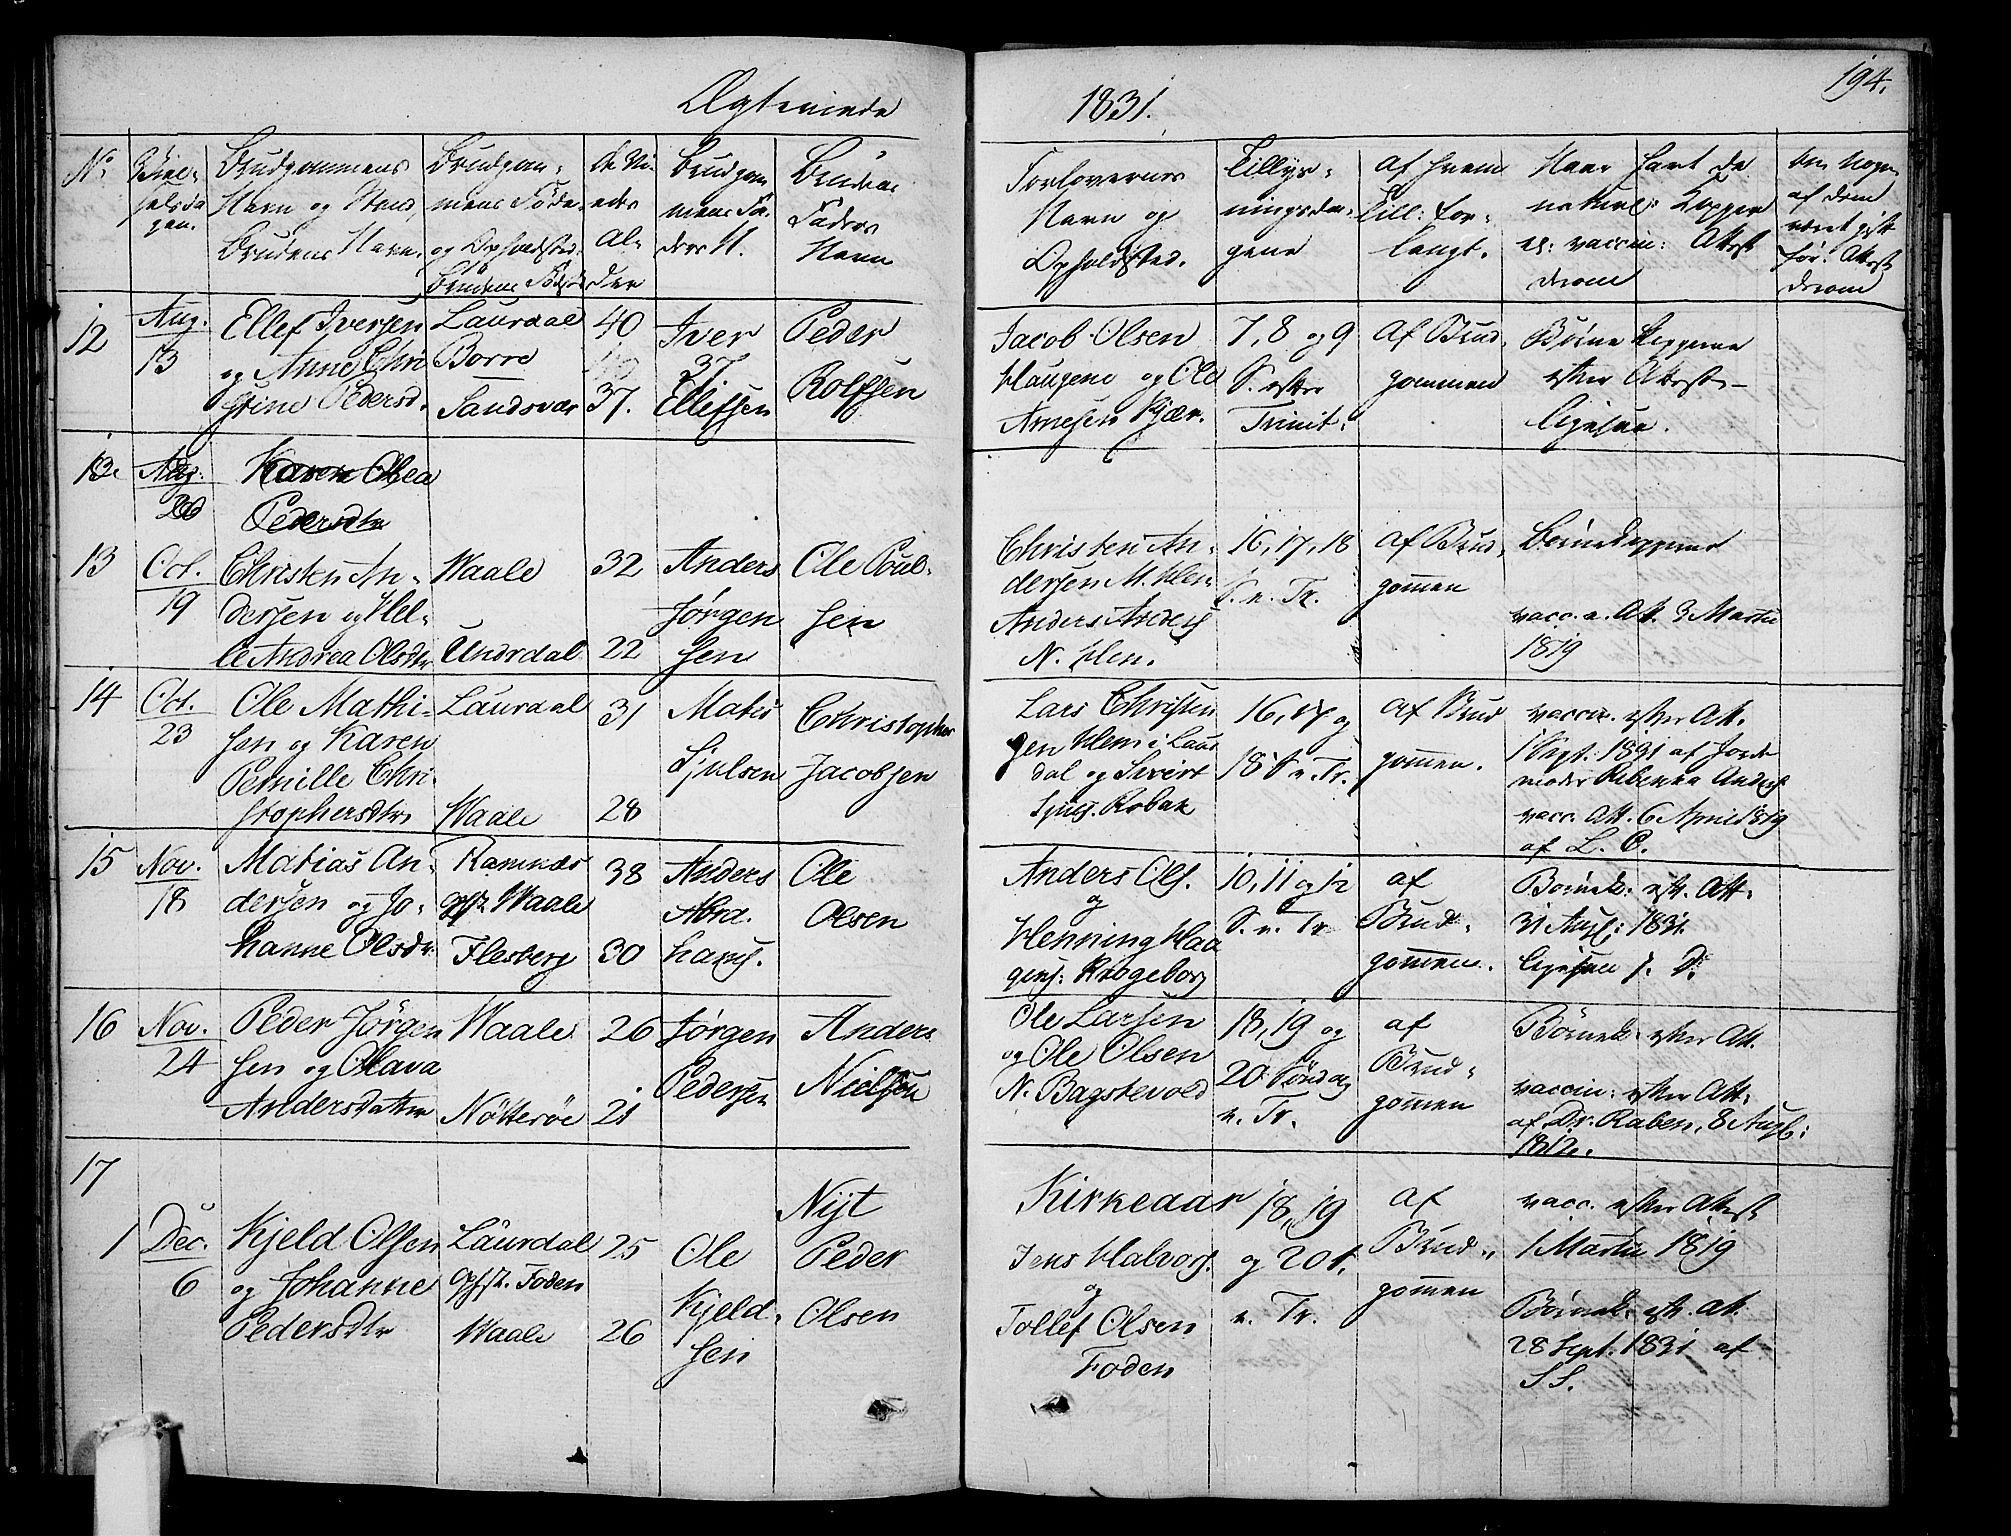 Ægteviede
1831.
194.
No
Vielsesdagen.
Brudgommens Navn og Stand, Brudens Navn.
Brudgommens Føde- og Opholdsted. Brudens Fødested
de Viedes Alder
Brudgommens Faders N.
Brudens Faders Navn
Forlovernes Navn og Opholdsted.
Tillysningsdagene
Af hvem Till: forlangt.
Naar havt de naturl: Kopper el: vaccin: Attest derom
Om Nogen af dem været gift før. Attest derom
12
Aug. 13
Ellef Iversen
og Anne Chri
stine Pedersd.
Laurdal
Borre
Sandsvær
40
37.
Iver
37
Ellefsen
Peder
Rolfsen
Jacob Olsen
Haugene og Ole
Arnesen Kjær.
7, 8 og 9
S. efter
Trinit.
af Brud-
gommen
Børne Kopperne
efter Attest
ligesaa.
13.
Aug. 26
Karen Olea
Pedersdtr
13
Oct. 19
Christen An-
dersen og Hel-
le Andrea Olsdtr
Waale
Undrdal
32
22
Anders
Jørgen
sen
Ole Poul-
sen
Christen An-
dersen M. Hem
Anders Anders
N. Hem.
16, 17, 18
S. e. Tr.
af Brud-
gommen
Børnekopperne
vacc. e. Att. 3 Martii
1819
14
Oct. 23
Ole Mathi-
sen og Karen
Pernille Chri
stophersdtr
Laurdal
Waale
31
28
Matis
Sjulsen
Christopher
Jacobsen
Lars Christen
sen Hem i Laur
dal og Sivert
Syvers. Robak
16, 17 og
18 S e Tr.
af Brud
gommen.
vaccin. efter Att.
1 Sept: 1831 af Jorde
moder Rebekka Anders
vacc. Att. 6 April 1819
af L. C.
15
Nov. 18
Matias An-
dersen og Jo-
hanne Olsdtr
Ramnæs
Opst. Waale
Flesberg
38
30
Anders
Abra.
hams.
Ole
Olsen
Anders Ols.
og
Henning Haa
gens: Krogeborg
10, 11 og 12
S. e. Tr
af
Brud-
gommen.
Børnek: eft. Att.
31 Aug: 1831.
ligesaa s. D.
16
Nov. 24
Peder Jørgen
sen og Olava
Andersdatter
Waale
Nøtterøe
26
21
Jørgen
Pedersen
Anders
Nielsen
Ole Larsen
og Ole Olsen
N. Bagstevold
18, 19 og
20 Søndag
e. Tr.
af
Brud-
gommen
Børnek: efter Att.
vaccin: efter Att.
af Dr. Raben, 8 Aug:
1812.
17
Nyt
Kirkeaar
1
Dec. 6
Kjeld Olsen
og Johanne
Pedersdtr
Laurdal
Opst. Foden
Waale
25
26
Ole
Kjeld-
sen
Peder
Olsen
Jens Halvors.
og
Tollef Olsen
Foden
18, 19
og 20 S.
e. Tr.
af
Brud-
gommen
vacc. efter Attest
1 Martii 1819
Børnek: eft. Att.
28 Sept. 1831 af
S S.